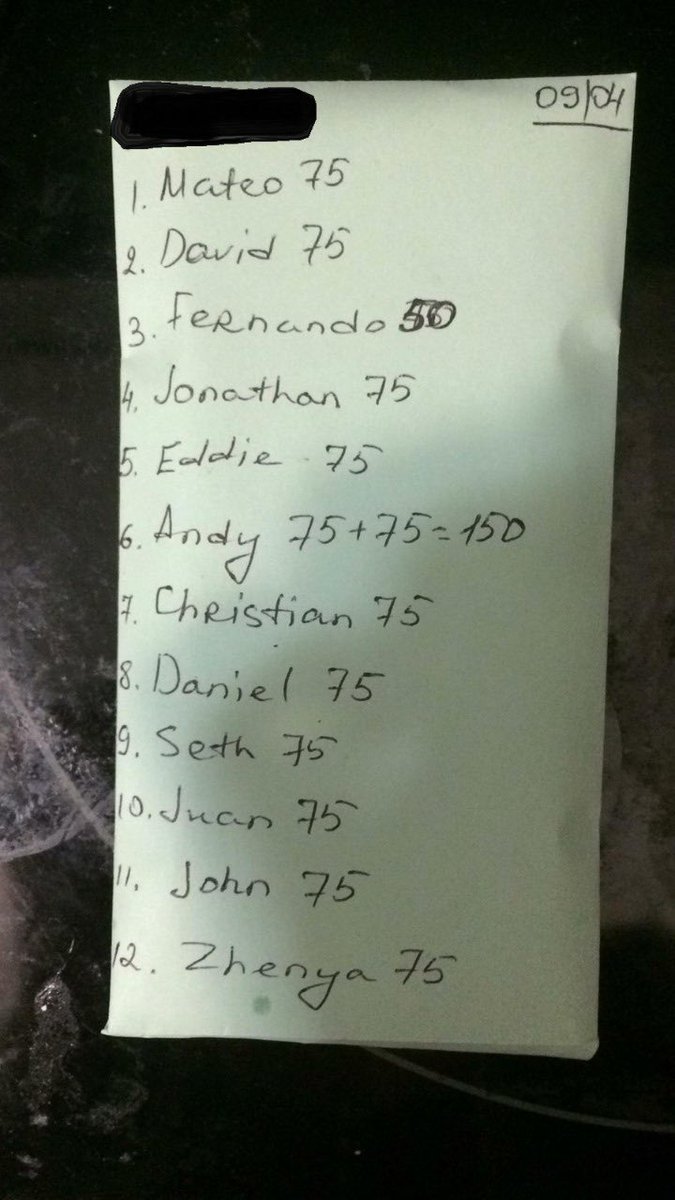 09/04
1. Mateo 75
2. David 75
3. Fernando 50
4. Jonathan 75
5. Eddie 75
6. Andy 75+75=150
7. Christian 75
8. Daniel 75
9. Seth 75
10. Juan 75
11. John 75
12. Zhenya 75